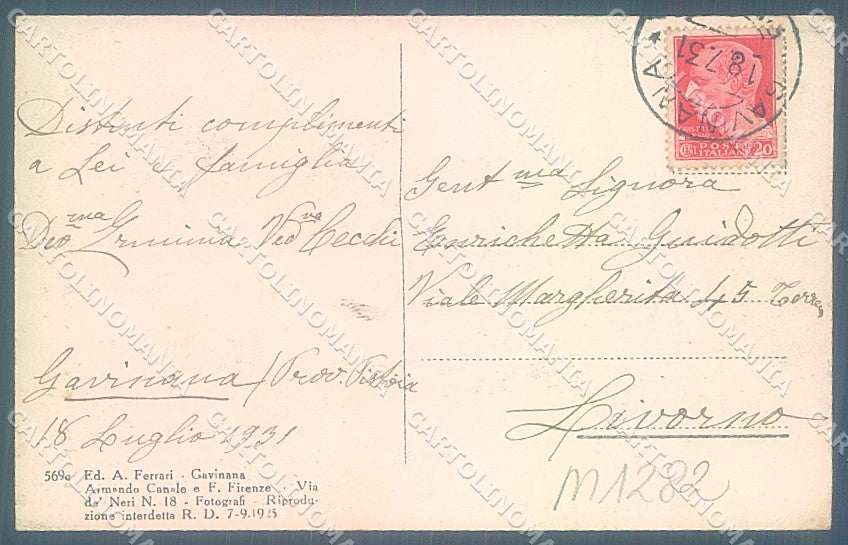 Distinti complimenti
a Lei e famiglia
Dvo ma Erminia Ved va Cecchi
Gavinana / Prov. Pistoia
18 Luglio 1931
569c Ed. A. Ferrari - Gavinana
Armando Canale e F. Firenze - Via
de' Neri N. 18 - Fotografi - Riprodu-
zione interdetta R. D. 7-9-1925
GAVINANA
18.7.31
POSTE
CENT ITALIANE 20
Gent ma Signora
Enrichetta Guidotti
Viale Margherita 45 Terreno
Livorno
M1282
CARTOLINOMANIA